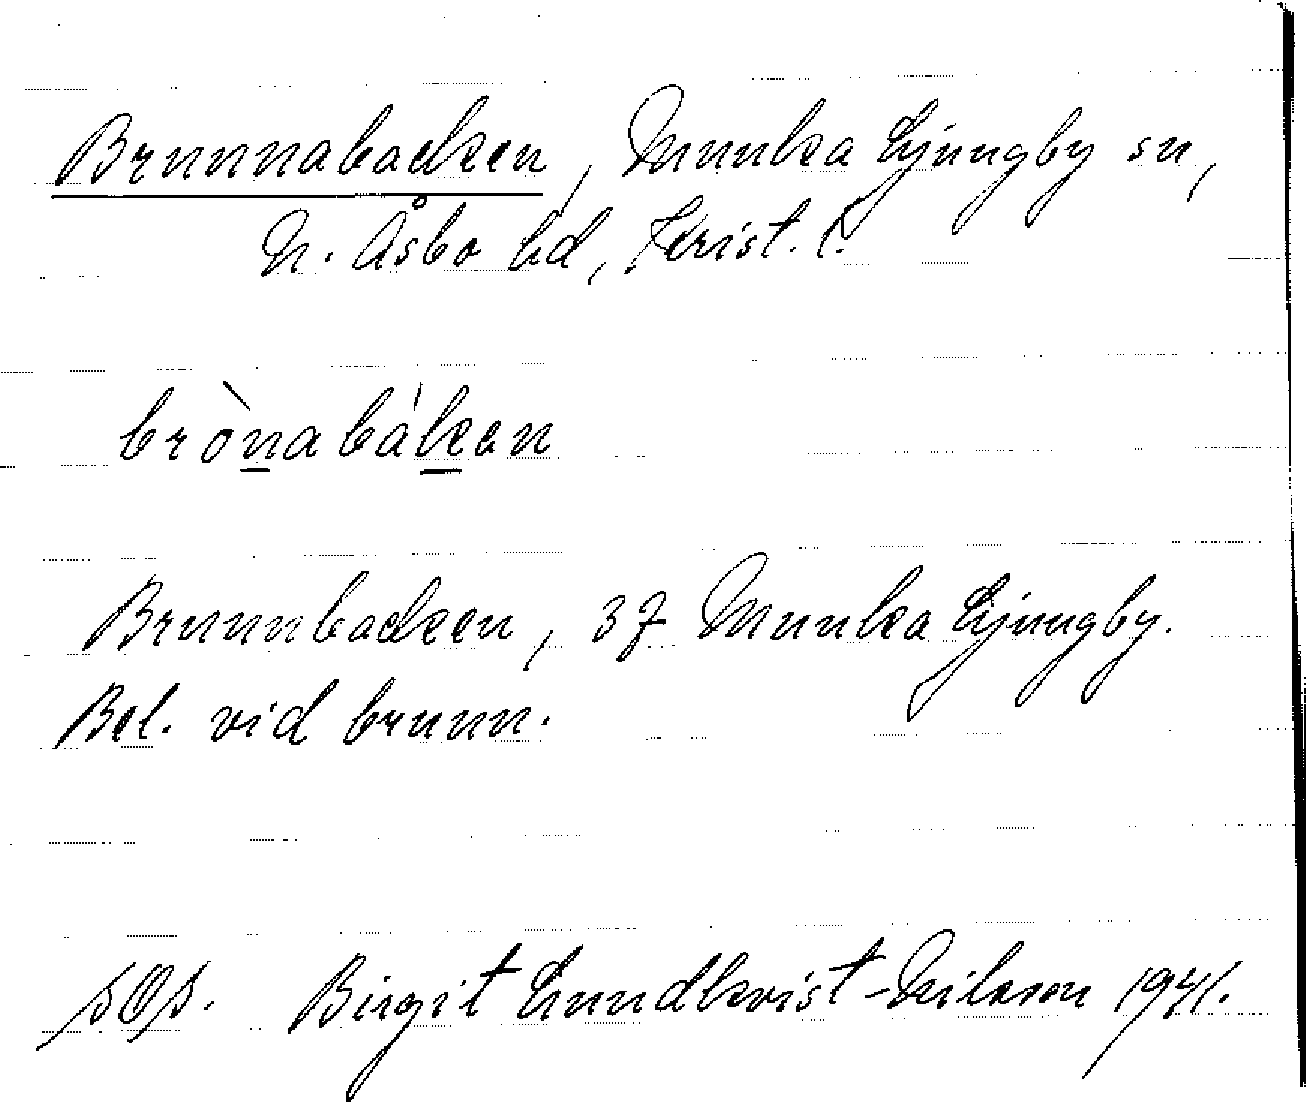 Brunnabacken, Munka Ljungby sn,
N. Åsbo hd, Krist. l.
brònabàkan
Brunnbacken, 37 Munka Ljungby.
Bel. vid brunn.
Birgit Lundkvist-Nilsson 1941.